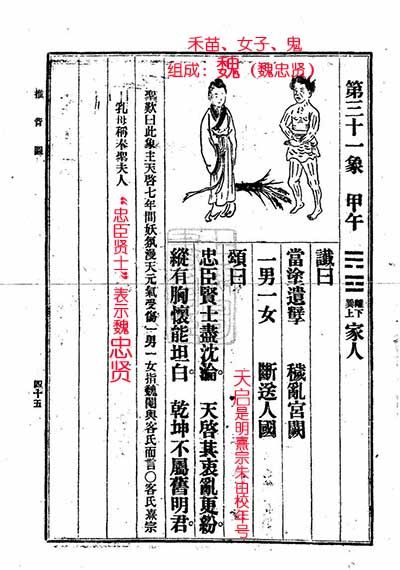 禾苗、女子、鬼
组成：魏（魏忠贤）
第三十一象 甲午
離下
巽上
家人
讖曰
當塗遺孽 穢亂宮闕
一男一女 斷送人國
頌曰
忠臣賢士盡沈淪 天啓其衷亂更紛
縱有胸懷能坦白 乾坤不屬舊明君
天启是明熹宗朱由校年号
聖歎曰此象主天啓七年間妖氛漫天元氣受傷一男一女指魏閹與客氏而言○客氏熹宗
乳母稱奉聖夫人
“忠臣贤士”表示魏忠贤
推背圖
四十五